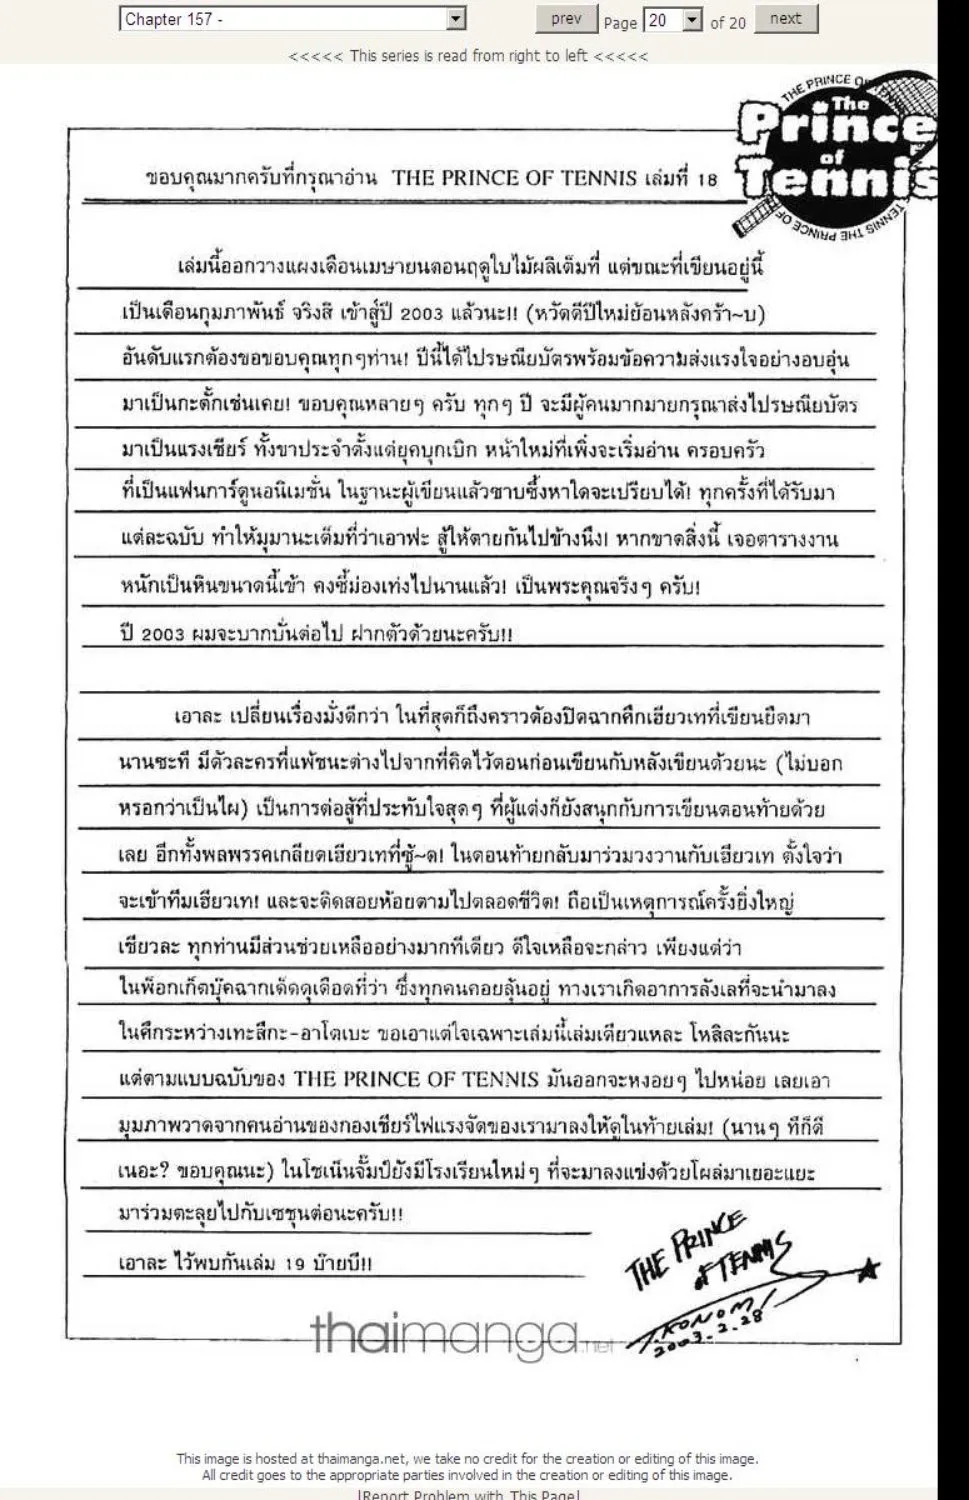 Chapter 157 -
prev Page 20 of 20 next
<<<<< This series is read from right to left <<<<<
THE PRINCE OF TENNIS THE PRINCE OF
The
Prince
of
Tennis
ขอบคุณมากครับที่กรุณาอ่าน THE PRINCE OF TENNIS เล่มที่ 18
เล่มนี้ออกวางแผงเดือนเมษายนตอนฤดูใบไม้ผลิเต็มที่ แต่ขณะที่เขียนอยู่นี้
เป็นเดือนกุมภาพันธ์ จริงสิ เข้าสู่ปี 2003 แล้วนะ!! (หวัดดีปีใหม่ย้อนหลังคร้า~บ)
อันดับแรกต้องขอขอบคุณทุกๆท่าน! ปีนี้ได้ไปรษณียบัตรพร้อมข้อความส่งแรงใจอย่างอบอุ่น
มาเป็นกะตั้กเช่นเคย! ขอบคุณหลายๆ ครับ ทุกๆ ปี จะมีผู้คนมากมายกรุณาส่งไปรษณียบัตร
มาเป็นแรงเชียร์ ทั้งขาประจำตั้งแต่ยุคบุกเบิก หน้าใหม่ที่เพิ่งจะเริ่มอ่าน ครอบครัว
ที่เป็นแฟนการ์ตูนอนิเมชั่น ในฐานะผู้เขียนแล้วซาบซึ้งหาใดจะเปรียบได้! ทุกครั้งที่ได้รับมา
แต่ละฉบับ ทำให้มุมานะเต็มที่ว่าเอาฟะ สู้ให้ตายกันไปข้างนึง! หากขาดสิ่งนี้ เจอตารางงาน
หนักเป็นหินขนาดนี้เข้า คงซี้ม่องเท่งไปนานแล้ว! เป็นพระคุณจริงๆ ครับ!
ปี 2003 ผมจะบากบั่นต่อไป ฝากตัวด้วยนะครับ!!
เอาละ เปลี่ยนเรื่องมั่งดีกว่า ในที่สุดก็ถึงคราวต้องปิดฉากศึกเฮียวเทที่เขียนยืดมา
นานซะที มีตัวละครที่แพ้ชนะต่างไปจากที่คิดไว้ตอนก่อนเขียนกับหลังเขียนด้วยนะ (ไม่บอก
หรอกว่าเป็นไผ) เป็นการต่อสู้ที่ประทับใจสุดๆ ที่ผู้แต่งก็ยังสนุกกับการเขียนตอนท้ายด้วย
เลย อีกทั้งพลพรรคเกลียดเฮียวเทที่ซู้~ด! ในตอนท้ายกลับมาร่วมวงวานกับเฮียวเท ตั้งใจว่า
จะเข้าทีมเฮียวเท! และจะติดสอยห้อยตามไปตลอดชีวิต! ถือเป็นเหตุการณ์ครั้งยิ่งใหญ่
เชียวละ ทุกท่านมีส่วนช่วยเหลืออย่างมากทีเดียว ดีใจเหลือจะกล่าว เพียงแต่ว่า
ในพ็อกเก็ตบุ๊คฉากเด็ดดุเดือดที่ว่า ซึ่งทุกคนคอยลุ้นอยู่ ทางเราเกิดอาการลังเลที่จะนำมาลง
ในศึกระหว่างเทะสึกะ-อาโตเบะ ขอเอาแต่ใจเฉพาะเล่มนี้เล่มเดียวแหละ โหสิละกันนะ
แต่ตามแบบฉบับของ THE PRINCE OF TENNIS มันออกจะหงอยๆ ไปหน่อย เลยเอา
มุมภาพวาดจากคนอ่านของกองเชียร์ไฟแรงจัดของเรามาลงให้ดูในท้ายเล่ม! (นานๆ ทีก็ดี
เนอะ? ขอบคุณนะ) ในโชเน็นจั๊มป์ยังมีโรงเรียนใหม่ๆ ที่จะมาลงแข่งด้วยโผล่มาเยอะแยะ
มาร่วมตะลุยไปกับเซชุนต่อนะครับ!!
เอาละ ไว้พบกันเล่ม 19 บ๊ายบี!!
THE PRINCE
of TENNIS
T.KONOMI
2003.2.28
thaimanga.net
This image is hosted at thaimanga.net, we take no credit for the creation or editing of this image.
All credit goes to the appropriate parties involved in the creation or editing of this image.
[Report Problem with This Page]